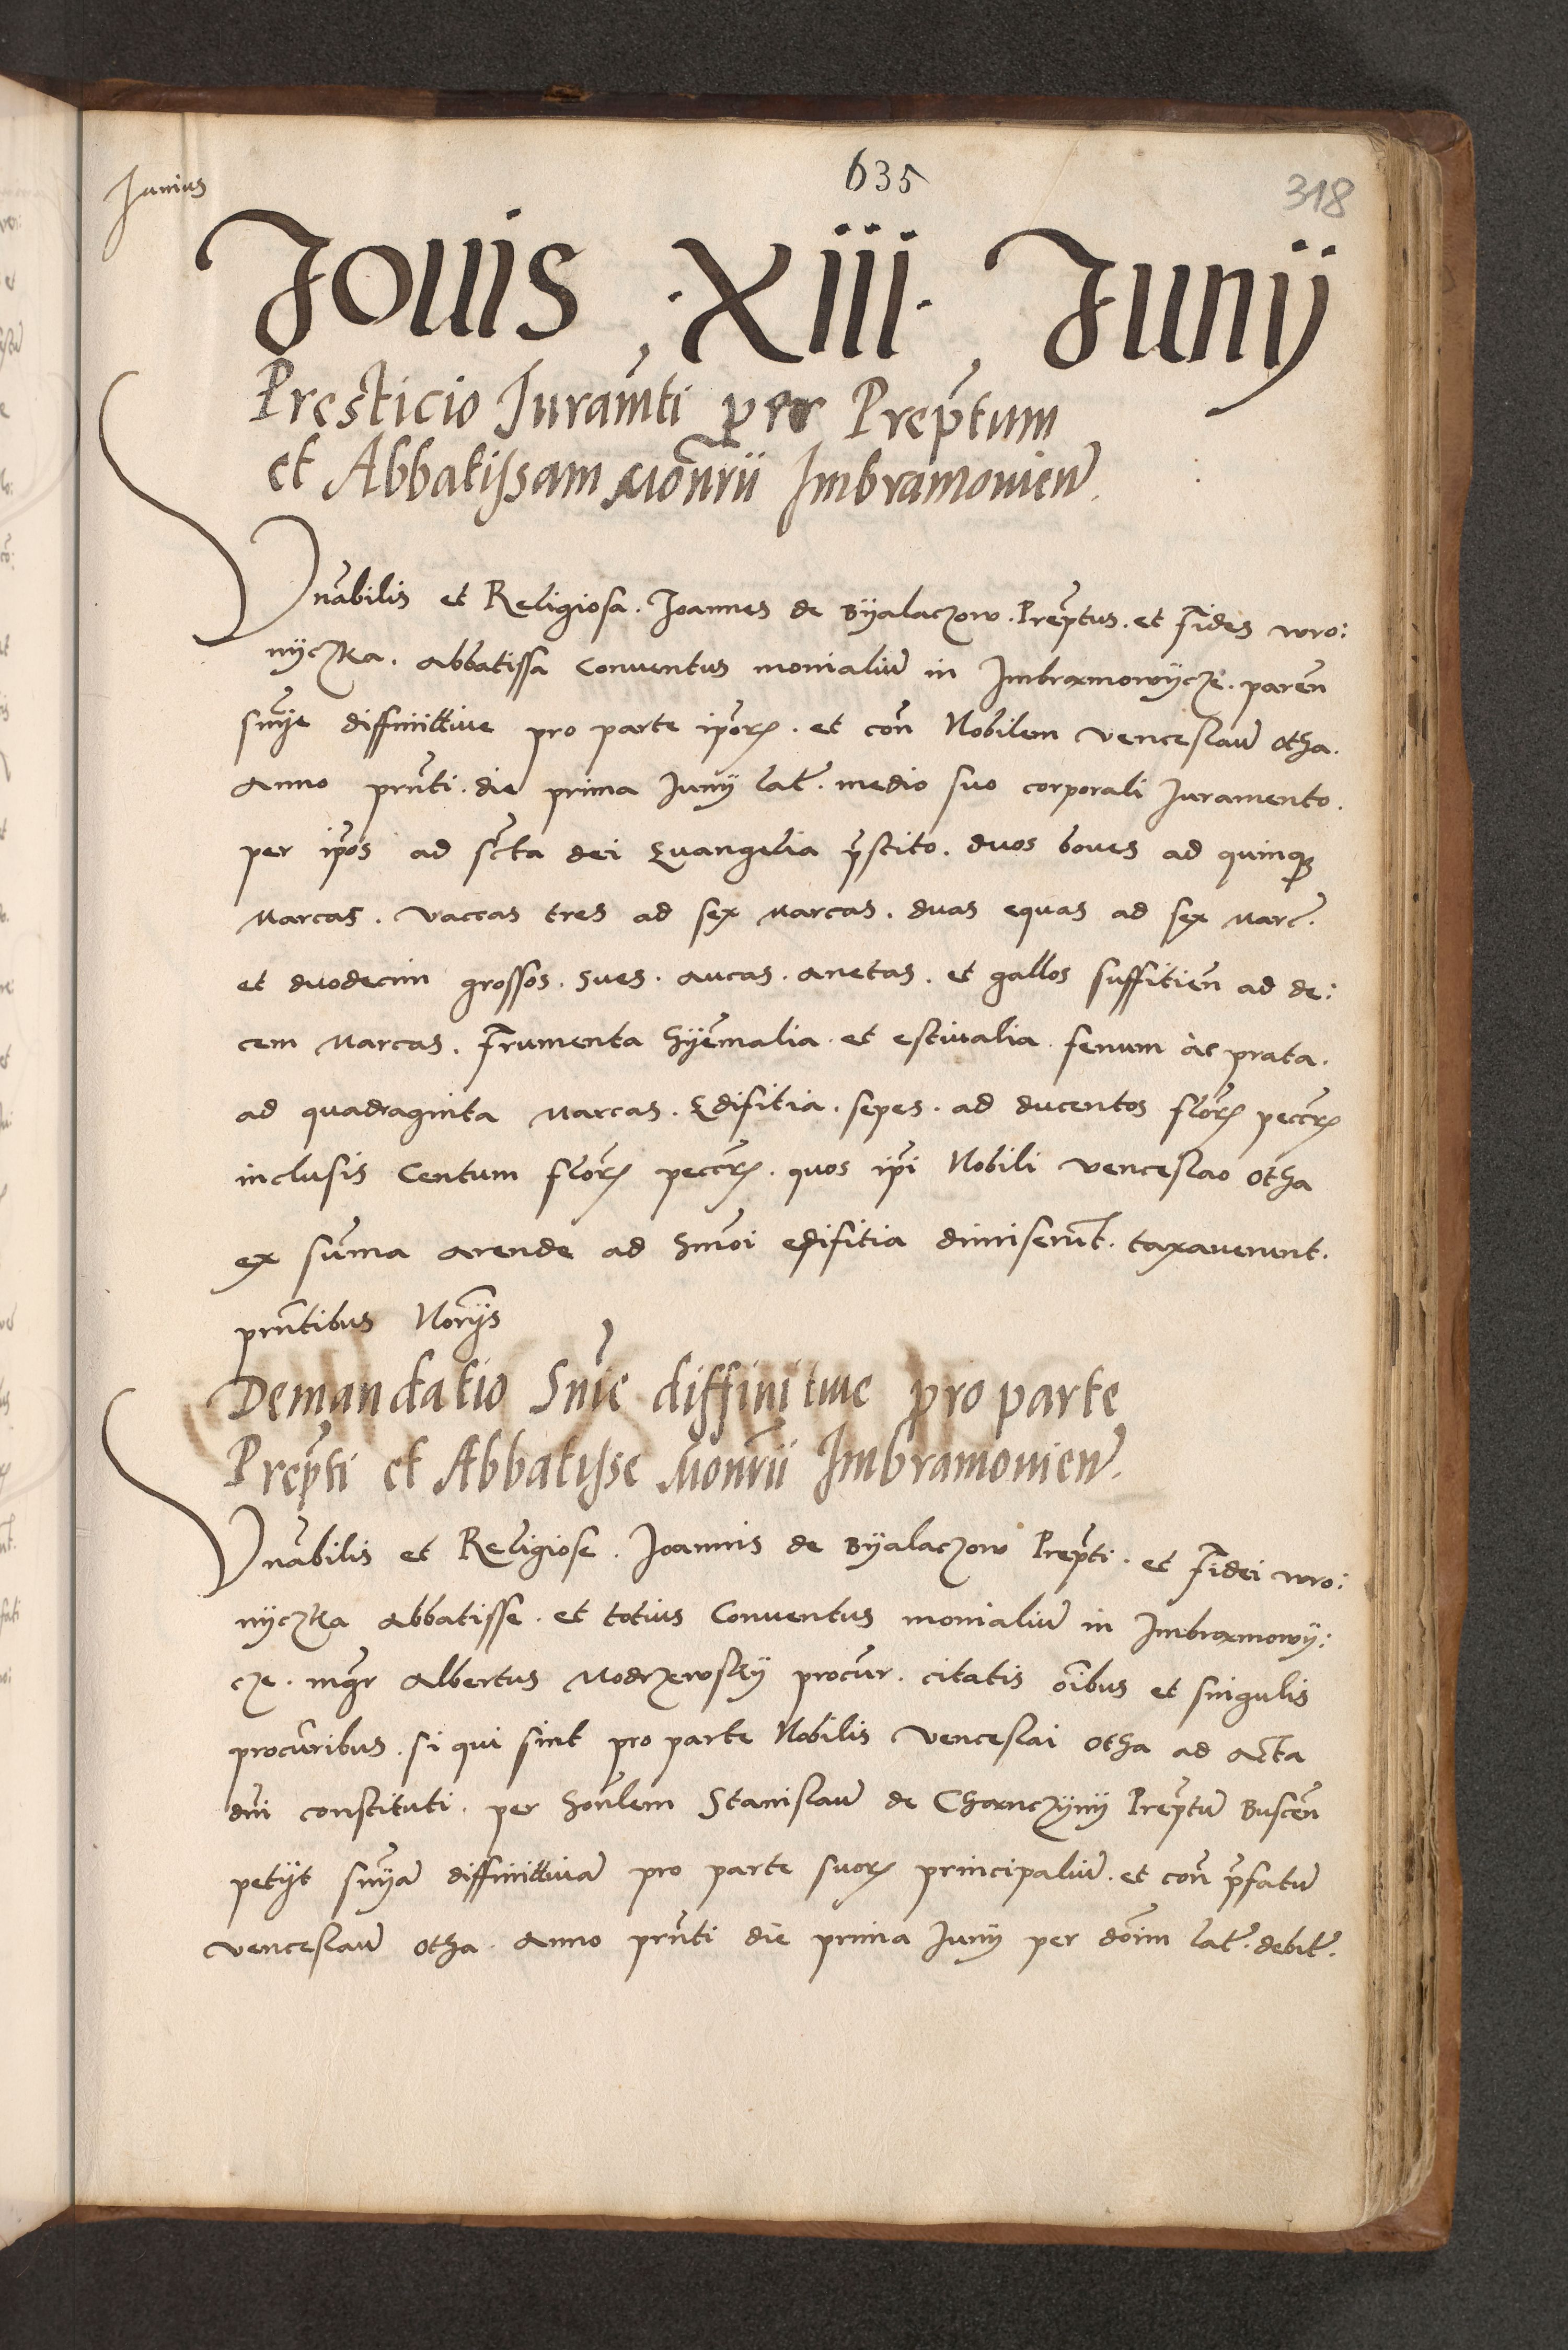 Junius
635
318
Jouis . XIII . Junij
Presticio Juramti per Preptum
et Abbatissam Monrii Imbramouien
Vnabilis et Religiosa . Joannes de Byalaczow . Preptus . et Fides wro:
nyczka . Abbatissa Conuentus monialiu in Imbramowycze . paren
snye diffinittiue pro parte ipor . et con Nobilem Venceslau otha .
Anno prnti . die prima Juny lat . medio suo corporali Juramento .
per ipos ad scta dei Euangelia pstito . duos boues ad quinq
Marcas . Vaccas tres ad sex Marcas . duas equas ad sex Marc .
et duodecim grossos . Sues . aucas . anetas . et gallos suffitien ad de:
cem Marcas . Frumenta hyemalia . et estiualia . fenum ac prata .
ad quadraginta Marcas . Edifitia . sepes . ad ducentos flor peccr
inclusis Centum flor peccr . quos ipi Nobili Venceslao otha
ex suma arende ad hmoi edifitia dimiserut . taxauerunt .
prntibus Norijs
Demandatio Snie diffinitiue pro parte
Prepti et Abbatisse Monrii Imbramouien
Vnabilis et Religiose . Joannis de Byalaczow Prepti . et Fidei wro:
nyczka Abbatisse . et totius Conuentus monialiu in Imbramowy:
cze . mgr Albertus Modrzewsky procur . citatis oibus et singulis
procuribus . si qui sint pro parte Nobilis Venceslai otha ad acta
dni constituti . per honlem Stanislau de Charnczyny Preptu Buscen
petijt snya diffinittiua pro parte suor principaliu . et con pfatu
Venceslau otha . Anno prnti die prima Juny per doim lat . debit .